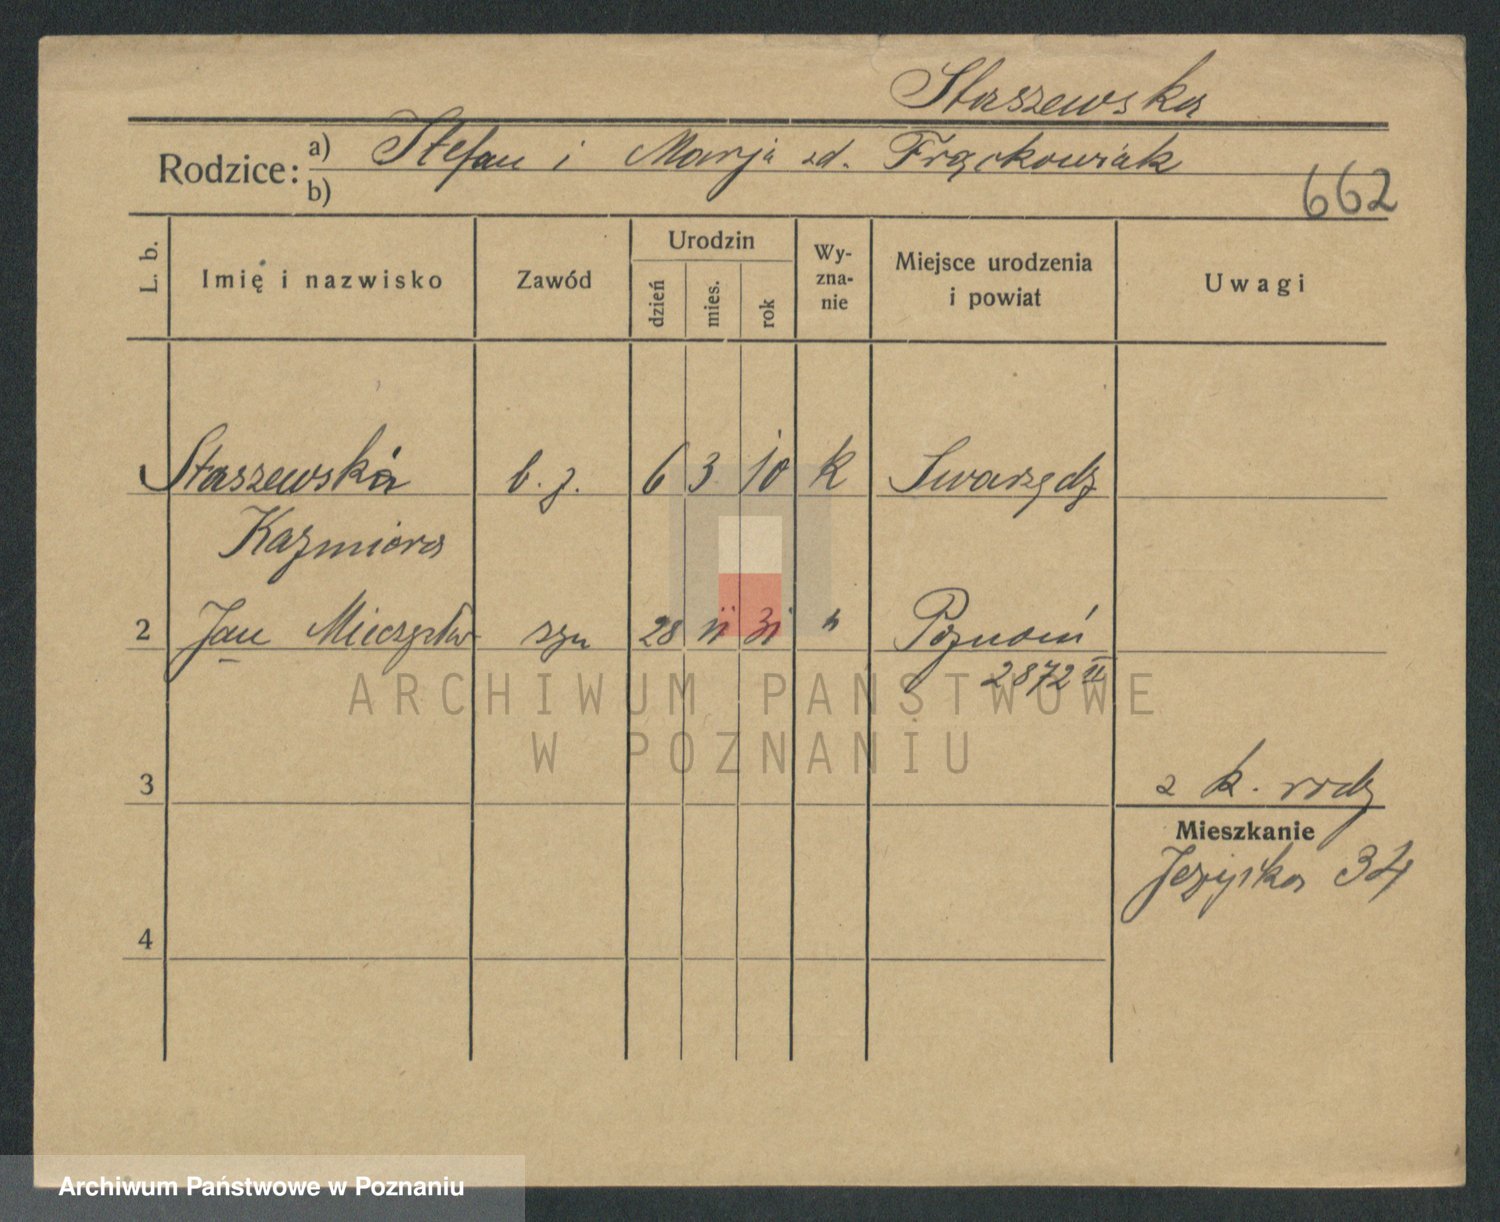 Staszewska
Rodzice: a) Stefan i Marja zd. Frąckowiak
b)
662
L. b. Imię i nazwisko Zawód Urodzin dzień mies. rok Wy-zna-nie Miejsce urodzenia i powiat Uwagi
Staszewska b. z. 6 3 10 k Swarzędz
Kazmiera
2 Jan Mieczysław syn 28 11 31 " Poznań
2872 II
3 z k. rodz
Mieszkanie
Jeżycka 34
4
ARCHIWUM PAŃSTWOWE
W POZNANIU
Archiwum Państwowe w Poznaniu